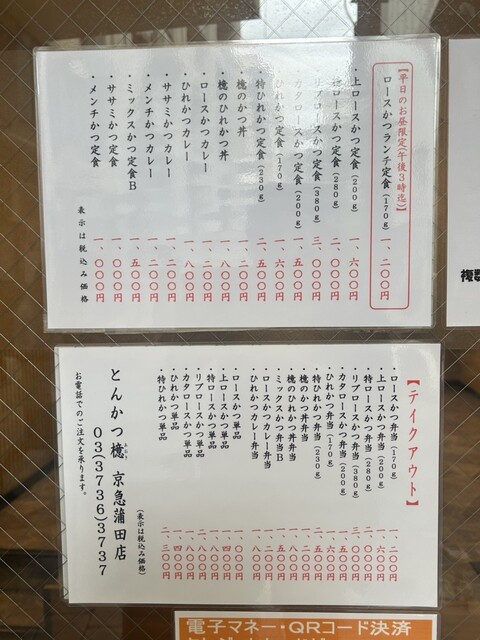 【平日のお昼限定(午後3時迄)】
ロースかつランチ定食(170g) 一、二〇〇円
・上ロースかつ定食(200g) 一、六〇〇円
・特ロースかつ定食(280g) 二、〇〇〇円
・リブロースかつ定食(380g) 三、〇〇〇円
・カタロースかつ定食(200g) 一、五〇〇円
・ひれかつ定食(170g) 一、六〇〇円
・特ひれかつ定食(230g) 二、五〇〇円
・檍のかつ丼 一、二〇〇円
・檍のひれかつ丼 一、八〇〇円
・ロースかつカレー 一、二〇〇円
・ひれかつカレー 一、八〇〇円
・ササミかつカレー 一、二〇〇円
・メンチかつカレー 一、二〇〇円
・ミックスかつ定食B 一、五〇〇円
・ササミかつ定食 一、〇〇〇円
・メンチかつ定食 一、〇〇〇円
表示は税込み価格
【テイクアウト】
・ロースかつ弁当(170g) 一、二〇〇円
・上ロースかつ弁当(200g) 一、六〇〇円
・特ロースかつ弁当(280g) 二、〇〇〇円
・リブロースかつ弁当(380g) 三、〇〇〇円
・カタロースかつ弁当(200g) 一、五〇〇円
・ひれかつ弁当(170g) 一、六〇〇円
・特ひれかつ弁当(230g) 二、五〇〇円
・檍のかつ丼弁当 一、二〇〇円
・檍のひれかつ丼弁当 一、八〇〇円
・ミックスかつ弁当B 一、五〇〇円
・ロースかつカレー弁当 一、二〇〇円
・ひれかつカレー弁当 一、八〇〇円
・ロースかつ単品 一、〇〇〇円
・上ロースかつ単品 一、四〇〇円
・特ロースかつ単品 一、八〇〇円
・リブロースかつ単品 二、八〇〇円
・カタロースかつ単品
・ひれかつ単品 一、四〇〇円
・特ひれかつ単品 二、三〇〇円
(表示は税込み価格)
とんかつ檍 京急蒲田店
03(3736)3737
お電話でのご注文を承ります。
電子マネー・QRコード決済